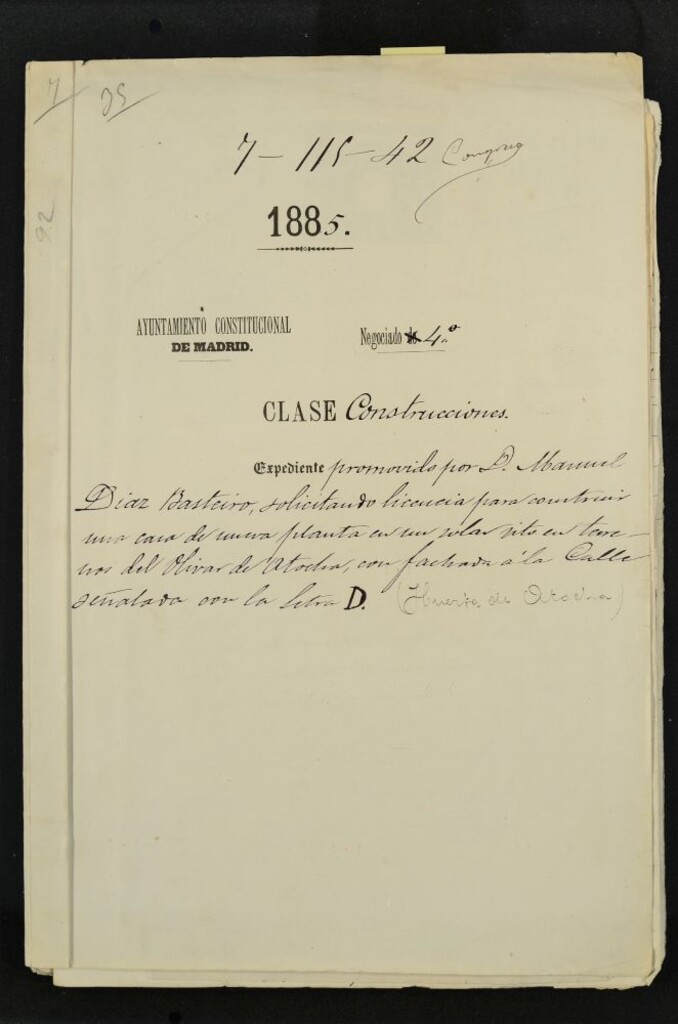 7
35
7-115-42 Congreso
92
1885.
AYUNTAMIENTO CONSTITUCIONAL
DE MADRID.
Negociado de 4.º
CLASE Construcciones.
Expediente promovido por D. Manuel
Diaz Basteiro, solicitando licencia para construir
una casa de nueva planta en un solar sito en terre-
nos del Olivar de Atocha, con fachada á la Calle
señalada con la letra D. (Huerta de Atocha)